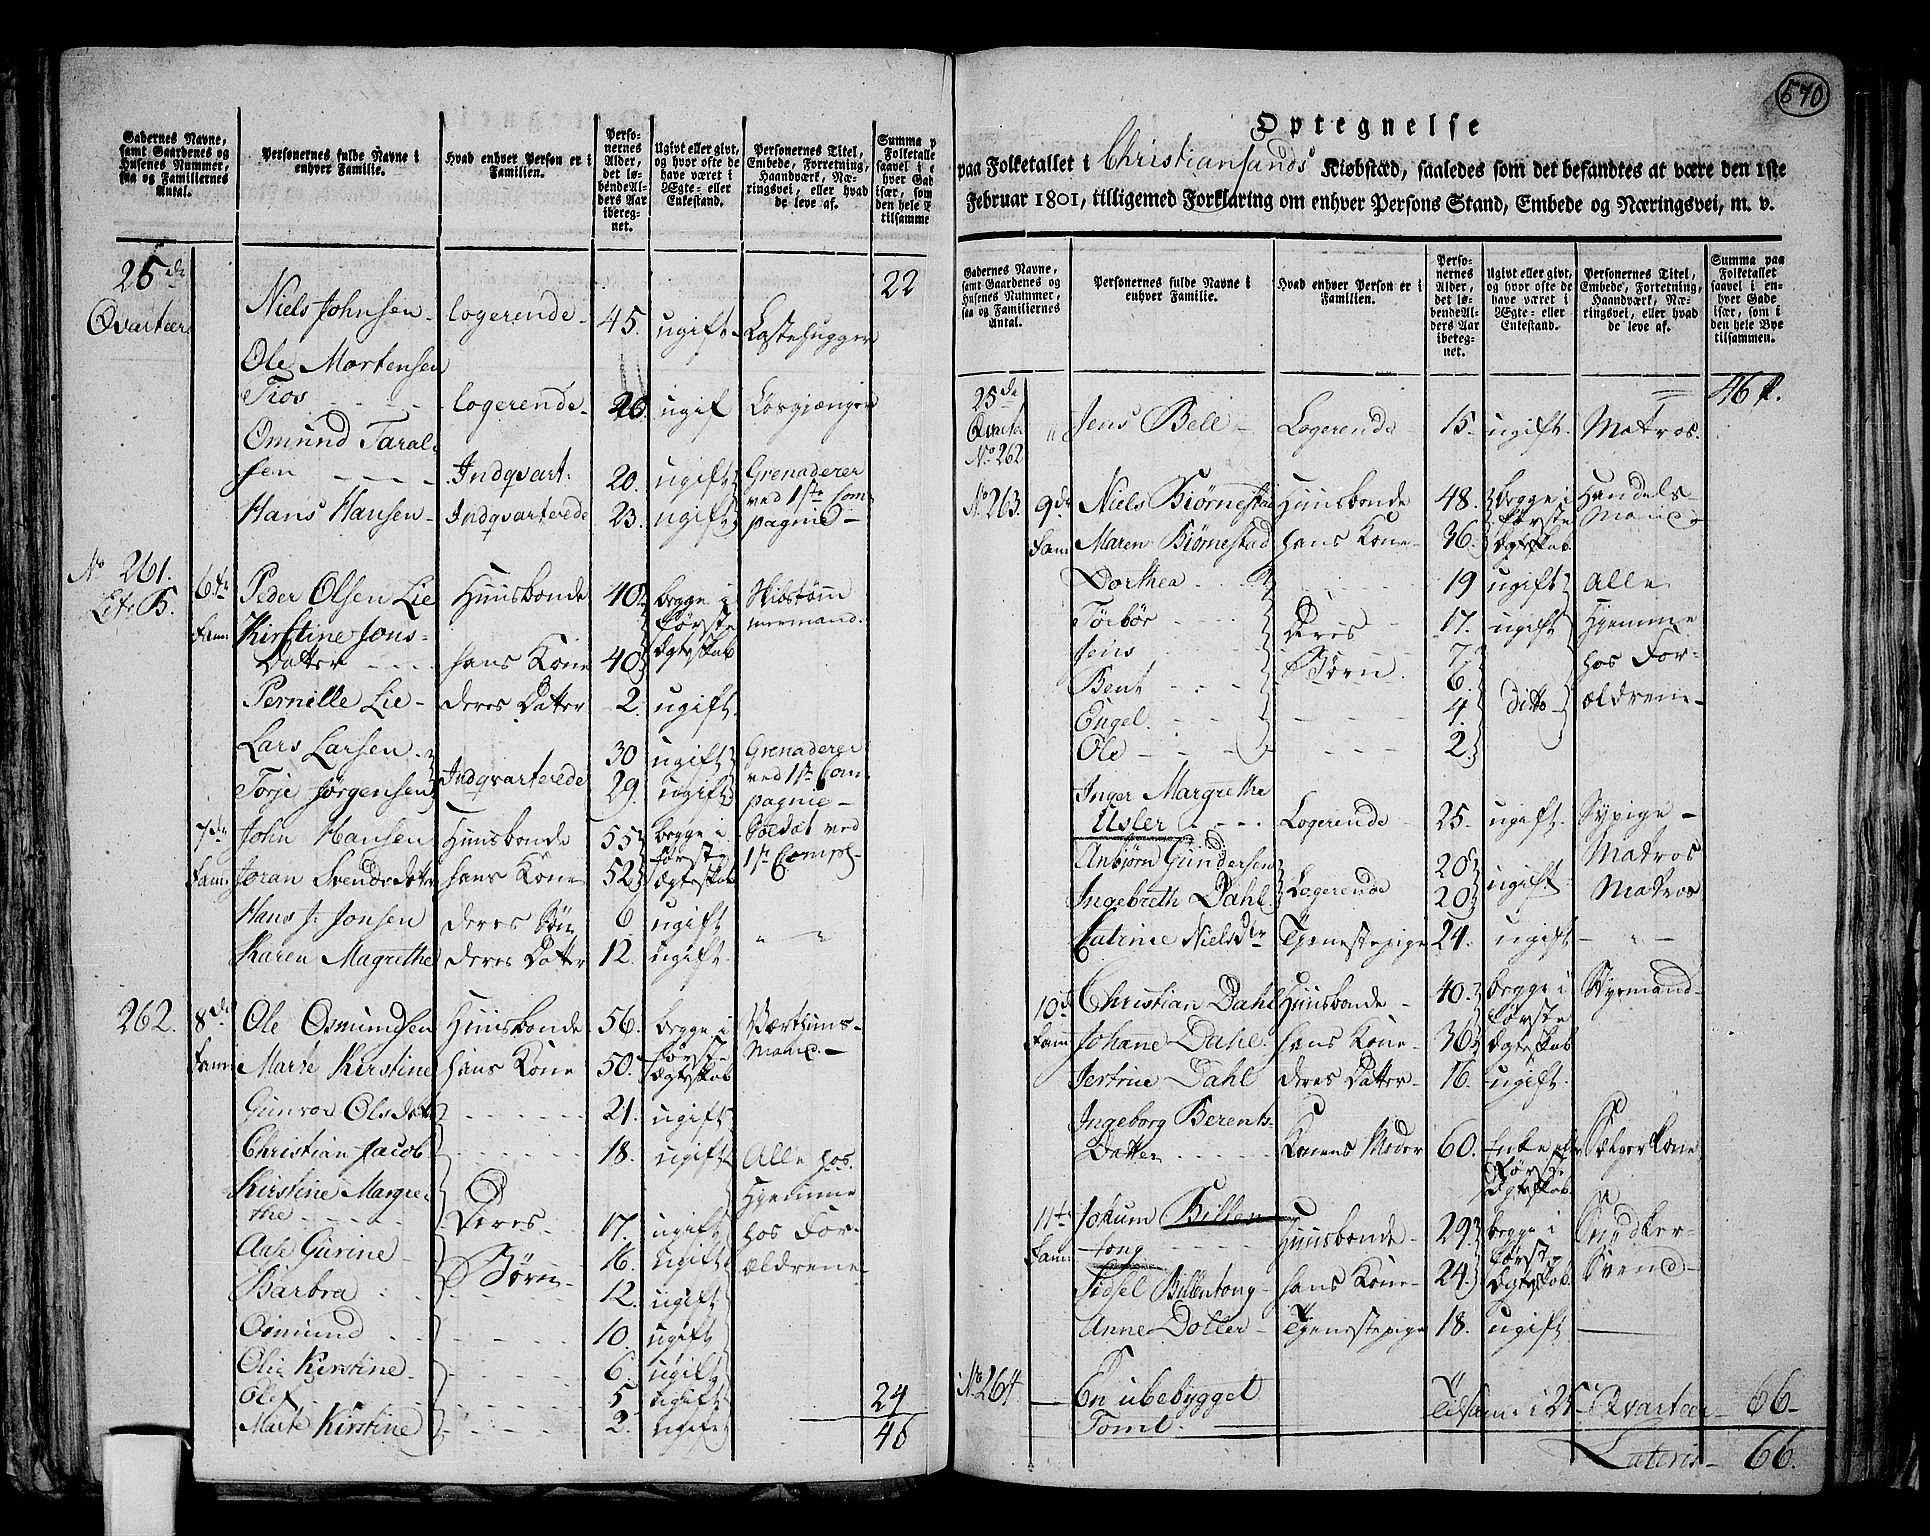 Gadernes Navne, samt Gaardenes og Husenes Nummer, saa og Familiernes Antal.
Personernes fulde Navne i enhver Familie.
Hvad enhver Person er i Familien.
Personernes Alder, det løbende Alders Aar iberegnet.
Ugivt eller givt, og hvor ofte de have været i Ægte- eller Enkestand.
Personernes Titel, Embede, Forretning, Haandværk, Næringsvei, eller hvad de leve af.
Summa p
Folketalle
saavel i e
hver Gad
især, som
den hele B
tilsamme
25de Qvarteer 22
Niels Johnsen - logerende - 45. ugift - Lastehugger
Ole Mortensen
Fios - - - logerende - 26. ugif Lørgjænger
Omund Taral-
sen - - - - Indqvart: 20. ugift Grenaderer
Hans Hansen - Indqvarterede 23. ugift ved 1ste Compagnie -
No 261. Litr B. 6te Fam: Peder Olsen Lie Huusbonde 40. begge i Første Ægteskab Skibstømmermand.
Kirstine Jons-
Datter - - - hans Kone 40
Pernille Lie - deres Datter 2. ugift
Lars Larsen - Indqvarterede 30 ugift Grenaderer
Torje Jørgensen 29. ugift ved 1ste Compagnie -
7de Fam: John Hansen Huusbonde 55 begge i første Ægteskab Soldat ved 1ste Comp:
Joran Svendsdatter hans Kone 52
Hans J: Jonsen deres Søn 6 ugift
Karen Magrethe deres Datter 12. ugift
262. 8de Fam: Ole Osmundsen Huusbonde 56. begge i første Ægteskab Værthuus-
Marte Kirstine hans Kone 50. Mand. -
Gunvor Olsdatter 21. ugift
Christian Jacob 18. ugift Alle hos
Kirstine Margre- Hjemme
the - - - Deres 17. ugift hos For-
Anne Gurine - Børn - 16. ugift ældrene -
Barbra 12. ugift
Osmund 10. ugift
Olie Kirstine 6. ugift
Ole 5 ugift 24
Marte Kirstine 2. ugift 46
570
Optegnelse
paa Folketallet i Christiansands Kiøbstæd, saaledes som det befandtes at være den 1ste
Februar 1801, tilligemed Forklaring om enhver Persons Stand, Embede og Næringsvei, m. v.
Gadernes Navne, samt Gaardenes og Husenes Nummer, saa og Familiernes Antal.
Personernes fulde Navne i enhver Familie.
Hvad enhver Person er i Familien.
Personernes Alder, det løbende Alders Aar iberegnet.
Ugivt eller givt, og hvor ofte de have været i Ægte- eller Enkestand.
Personernes Titel, Embede, Forretning, Haandværk, Næringsvei, eller hvad de leve af.
Summa paa Folketallet saavel i enhver Gade især, som i den hele Bye tilsammen.
46
25de Qvarte No 262 Jens Bell - Logerende 15. ugift. Matros.
No 263. 9de Fam: Niels Biørnestad Huusbonde 48. begge i første Ægteskab Handels-
Maren Biørnestad hans Kone - 36. Mand
Dorthea 19 ugift Alle
Torbor Deres 17. ugift Hjemme
Jens Børn 7. hos For-
Bent 6. ditto ældrene -
Engel 4.
Ole 2
Inger Margrethe
Usler Logerende 25. ugift. Sypige -
Anbjørn Gundersen Logerende 20 ugift Matros
Ingebreth Dahl 20 Matros
Catrine Nielsdtr Tjenestepige 24. ugift
10de Fam Christian Dahl Huusbonde - 40. begge i første Ægteskab Styrmand
Johanne Dahl. hans Kone - 36
Jertrine Dahl deres Datter - 16. ugift.
Ingeborg Berents-
Datter Konens Moder 60. Enke efter Første Ægteskab Sælgerkone
11te Fam Jokum Billen-
tong Huusbonde - 29 begge i Første Ægteskab Snedker-
Sissel Billentong - hans Kone - 24. Svend
Anne Dotter - Tjenestepige 18. ugift
No 264 En ubebygget
Tomt. Tilsam: i 25 Qvarteer 66 -
Lateris - 66.